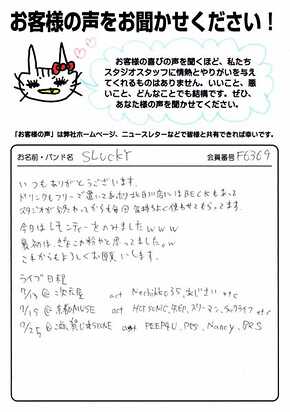 お客様の声をお聞かせください!
お客様の喜びの声を聞くほど、私たち
スタジオスタッフに情熱とやりがいを与え
てくれるものはありません。いいこと、悪
いこと、どんなことでも結構です。ぜひ、
あなた様の声を聞かせてください。
「お客様の声」は弊社ホームページ、ニュースレターなどで皆様と共有できれば幸いです。
お名前・バンド名 SLUCKY 会員番号 F6369
いつもありがとうございます。
ドリンクもフリーで置いてあり
スタジオが 毎回気持ちよく使わせてもらってます。
今日はレモンティーをのみましたwww
最初は、きなこの粉かと思ってましたw
これからもよろしくお願いします。
ライブ日程
7/13 @ act etc
7/19 @ 京都MUSE act etc
7/25 @ act PEEP4U, Nancy,